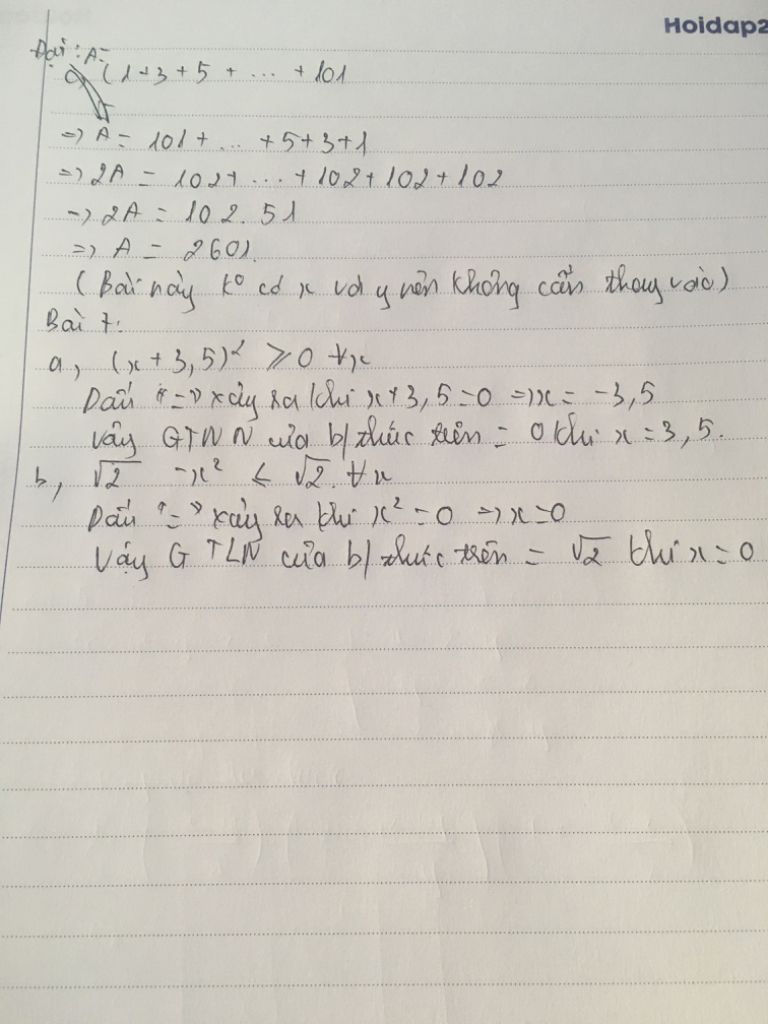 Hoidap2
Đặt : A =
(1 + 3 + 5 + ... + 101
=> A = 101 + ... + 5 + 3 + 1
=> 2A = 102 + ... + 102 + 102 + 102
=> 2A = 102 . 51
=> A = 2601.
(Bài này k° có x và y nên không cần thay vào)
Bài 7:
a, (x + 3,5)² ⩾ 0 ∀x
Dấu "=" xảy ra khi x + 3,5 = 0 => x = -3,5
Vậy GTNN của b/thức trên = 0 khi x = 3,5.
b, √2 - x² ≤ √2. ∀x
Dấu "=" xảy ra khi x² = 0 => x = 0
Vậy GTLN của b/thức trên = √2 khi x = 0